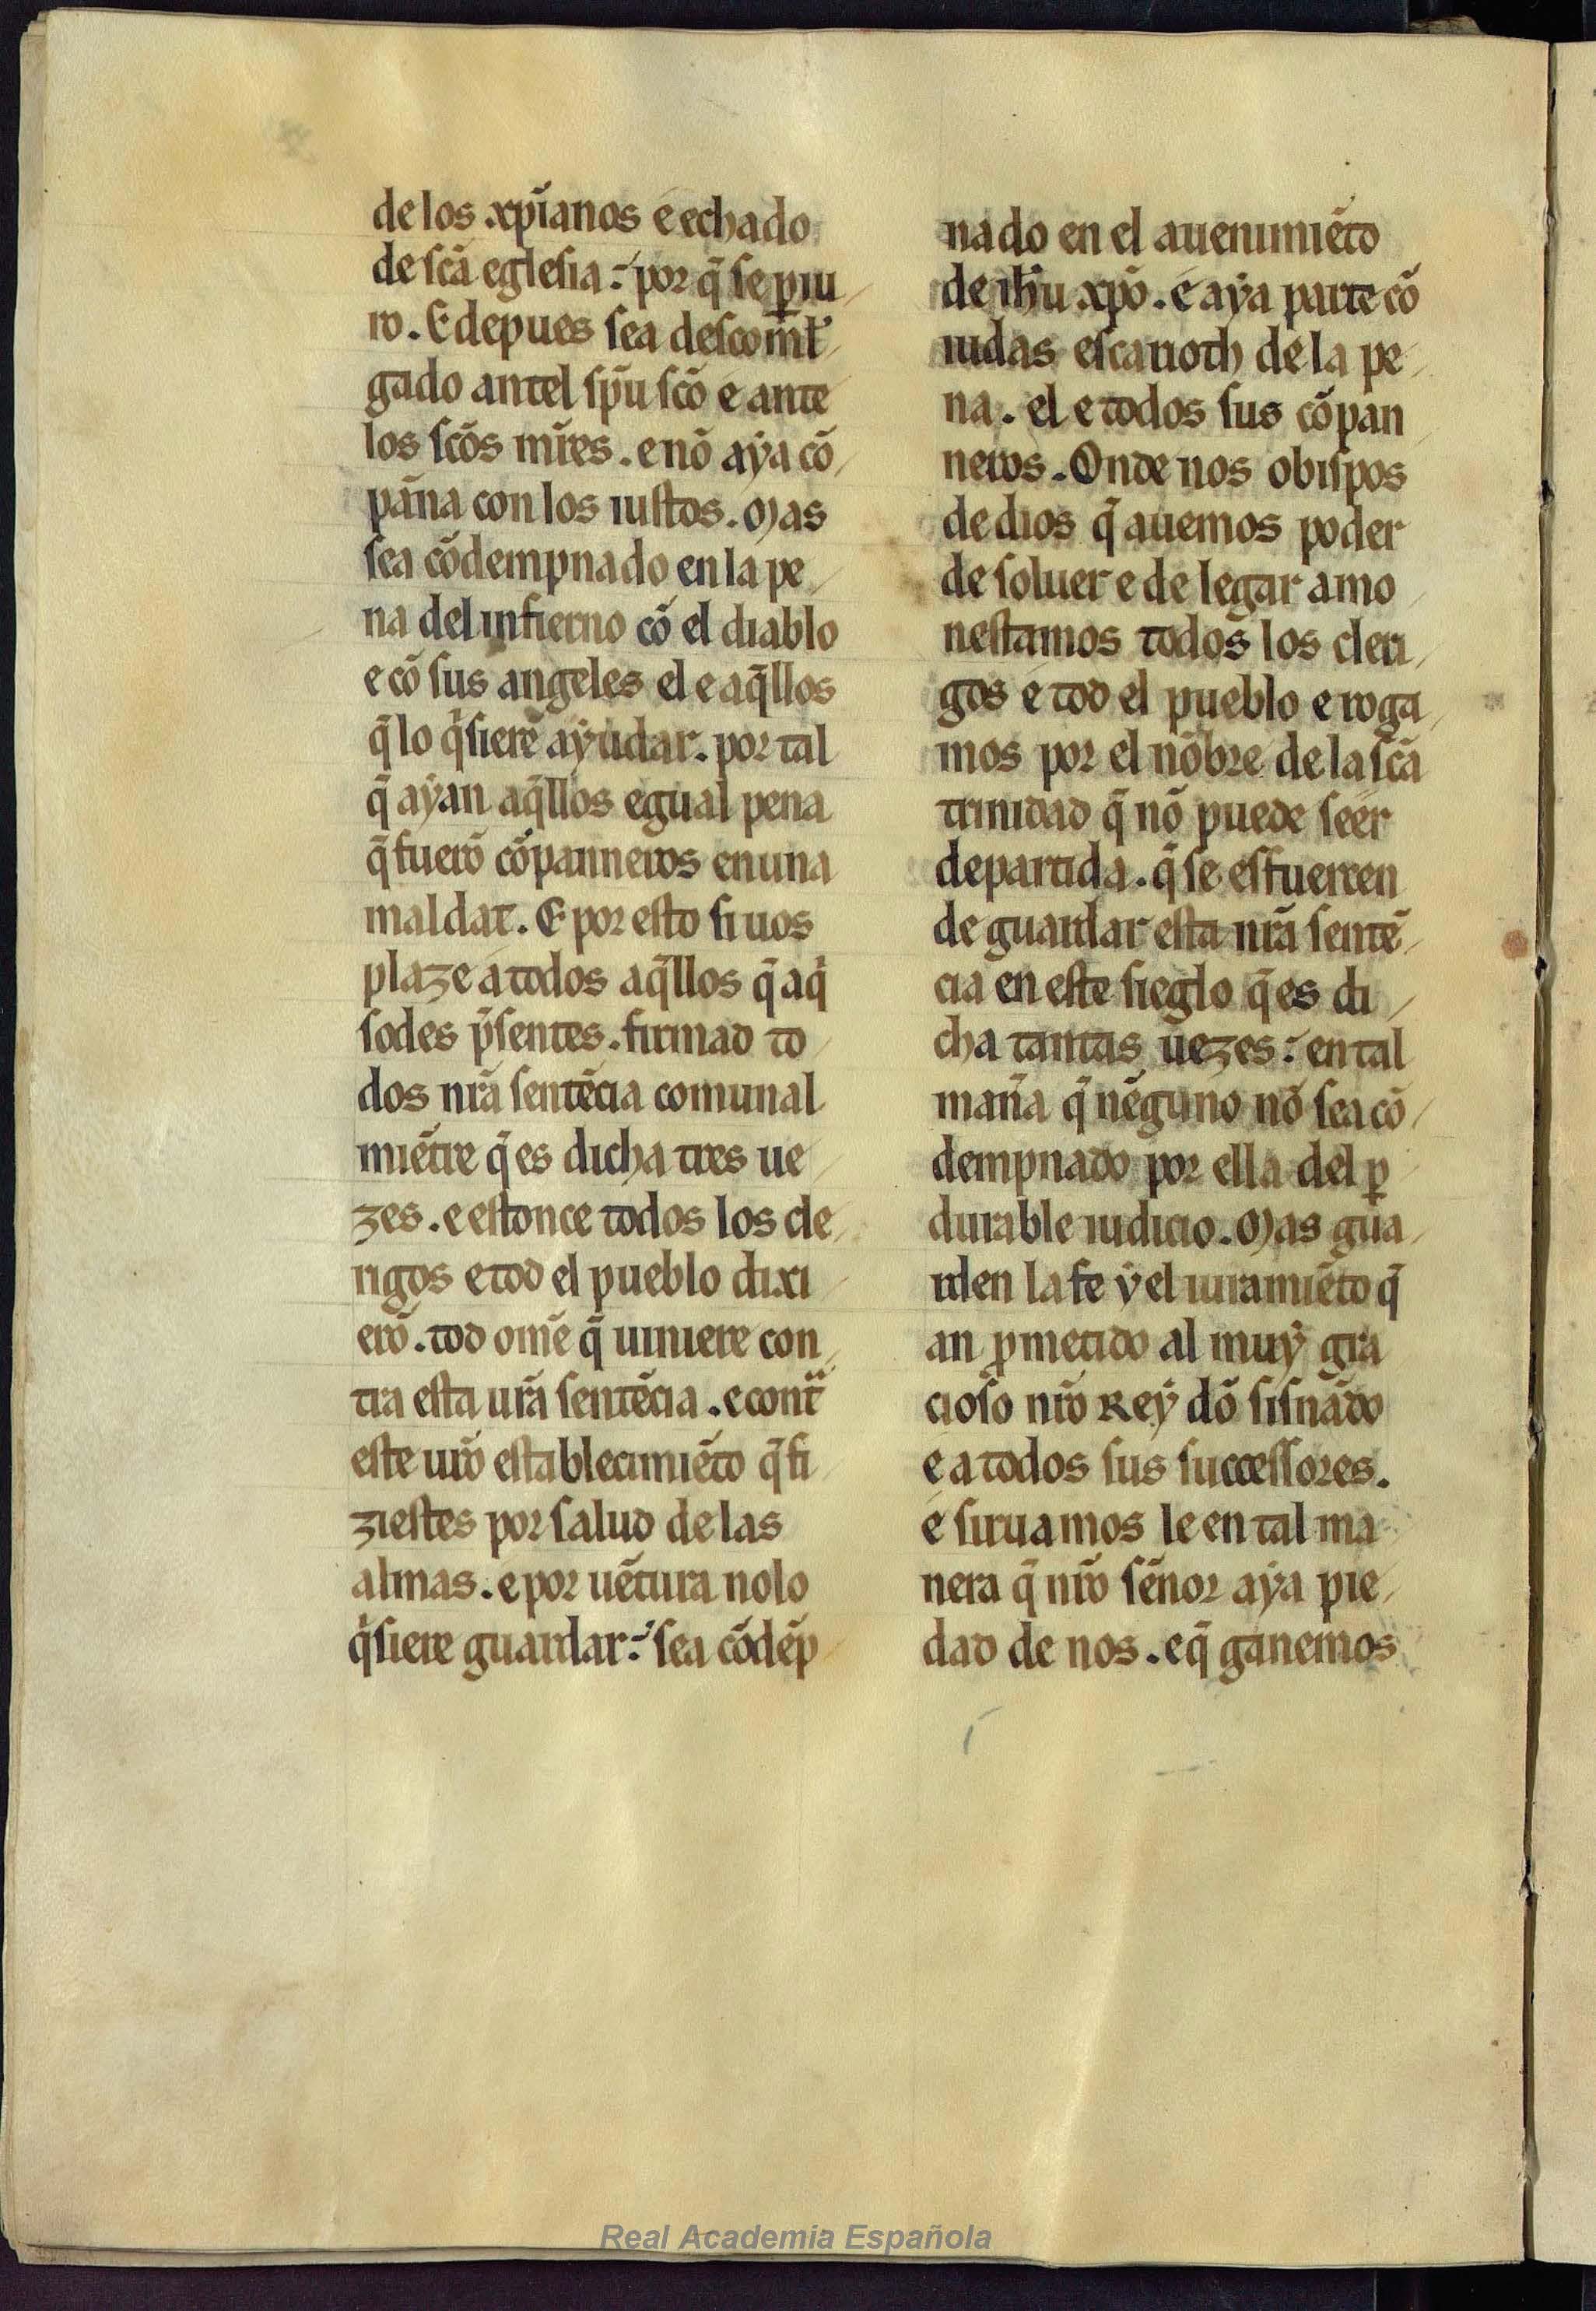 de los xp̃ianos e echado
de sc̃a eglesia. por q̃ se ꝑiu
ro. E depues sea descom̃l
gado antel sp̃u sc̃o e ante
los sc̃os mr̃es. e nõ aya cõ
pãna con los iustos. Mas
sea cõdempnado en la pe
na del infierno cõ el diablo
e cõ sus angeles el e aq̃llos
q̃ lo q̃sierẽ ayudar. por tal
q̃ ayan aq̃llos egual pena
q̃ fuerõ cõpanneros en una
maldat. E por esto si uos
plaze a todos aq̃llos q̃ aq̃
sodes p̃sentes. firmad to
dos nr̃a sentẽcia comunal
miẽtre q̃ es dicha tres ue
zes. e estonce todos los cle
rigos e tod el pueblo dixi
erõ. tod omẽ q̃ uiniere con
tra esta ur̃a sentẽcia. e cont̃
este ur̃o establecimiẽto q̃ fi
ziestes por salud de las
almas. e por uẽtura no lo
q̃siere guardar. sea cõdẽp
nado en el auenimiẽto
de ih̃u xp̃o. e aya parte cõ
iudas escarioth de la pe
na. el e todos sus cõpan
neros. Onde nos obispos
de dios q̃ auemos poder
de soluer e de legar amo
nestamos todos los cleri
gos e tod el pueblo e roga
mos por el nõbre de la sc̃a
trinidad q̃ nõ puede seer
departida. q̃ se esfuercen
de guardar esta nr̃a sentẽ
cia en este sieglo q̃ es di
cha tantas uezes. en tal
mañ̃a q̃ nẽguno nõ sea cõ
dempnado por ella del ꝑ
durable iudicio. Mas gua
rden la fe y el iuramiẽto q̃
an ꝓmetido al muy gra
cioso nr̃o Rey dõ sisnãdo
e a todos sus successores.
e siruamos le en tal ma
nera q̃ nr̃o sẽnor aya pie
dad de nos. e q̃ ganemos
Real Academia Española